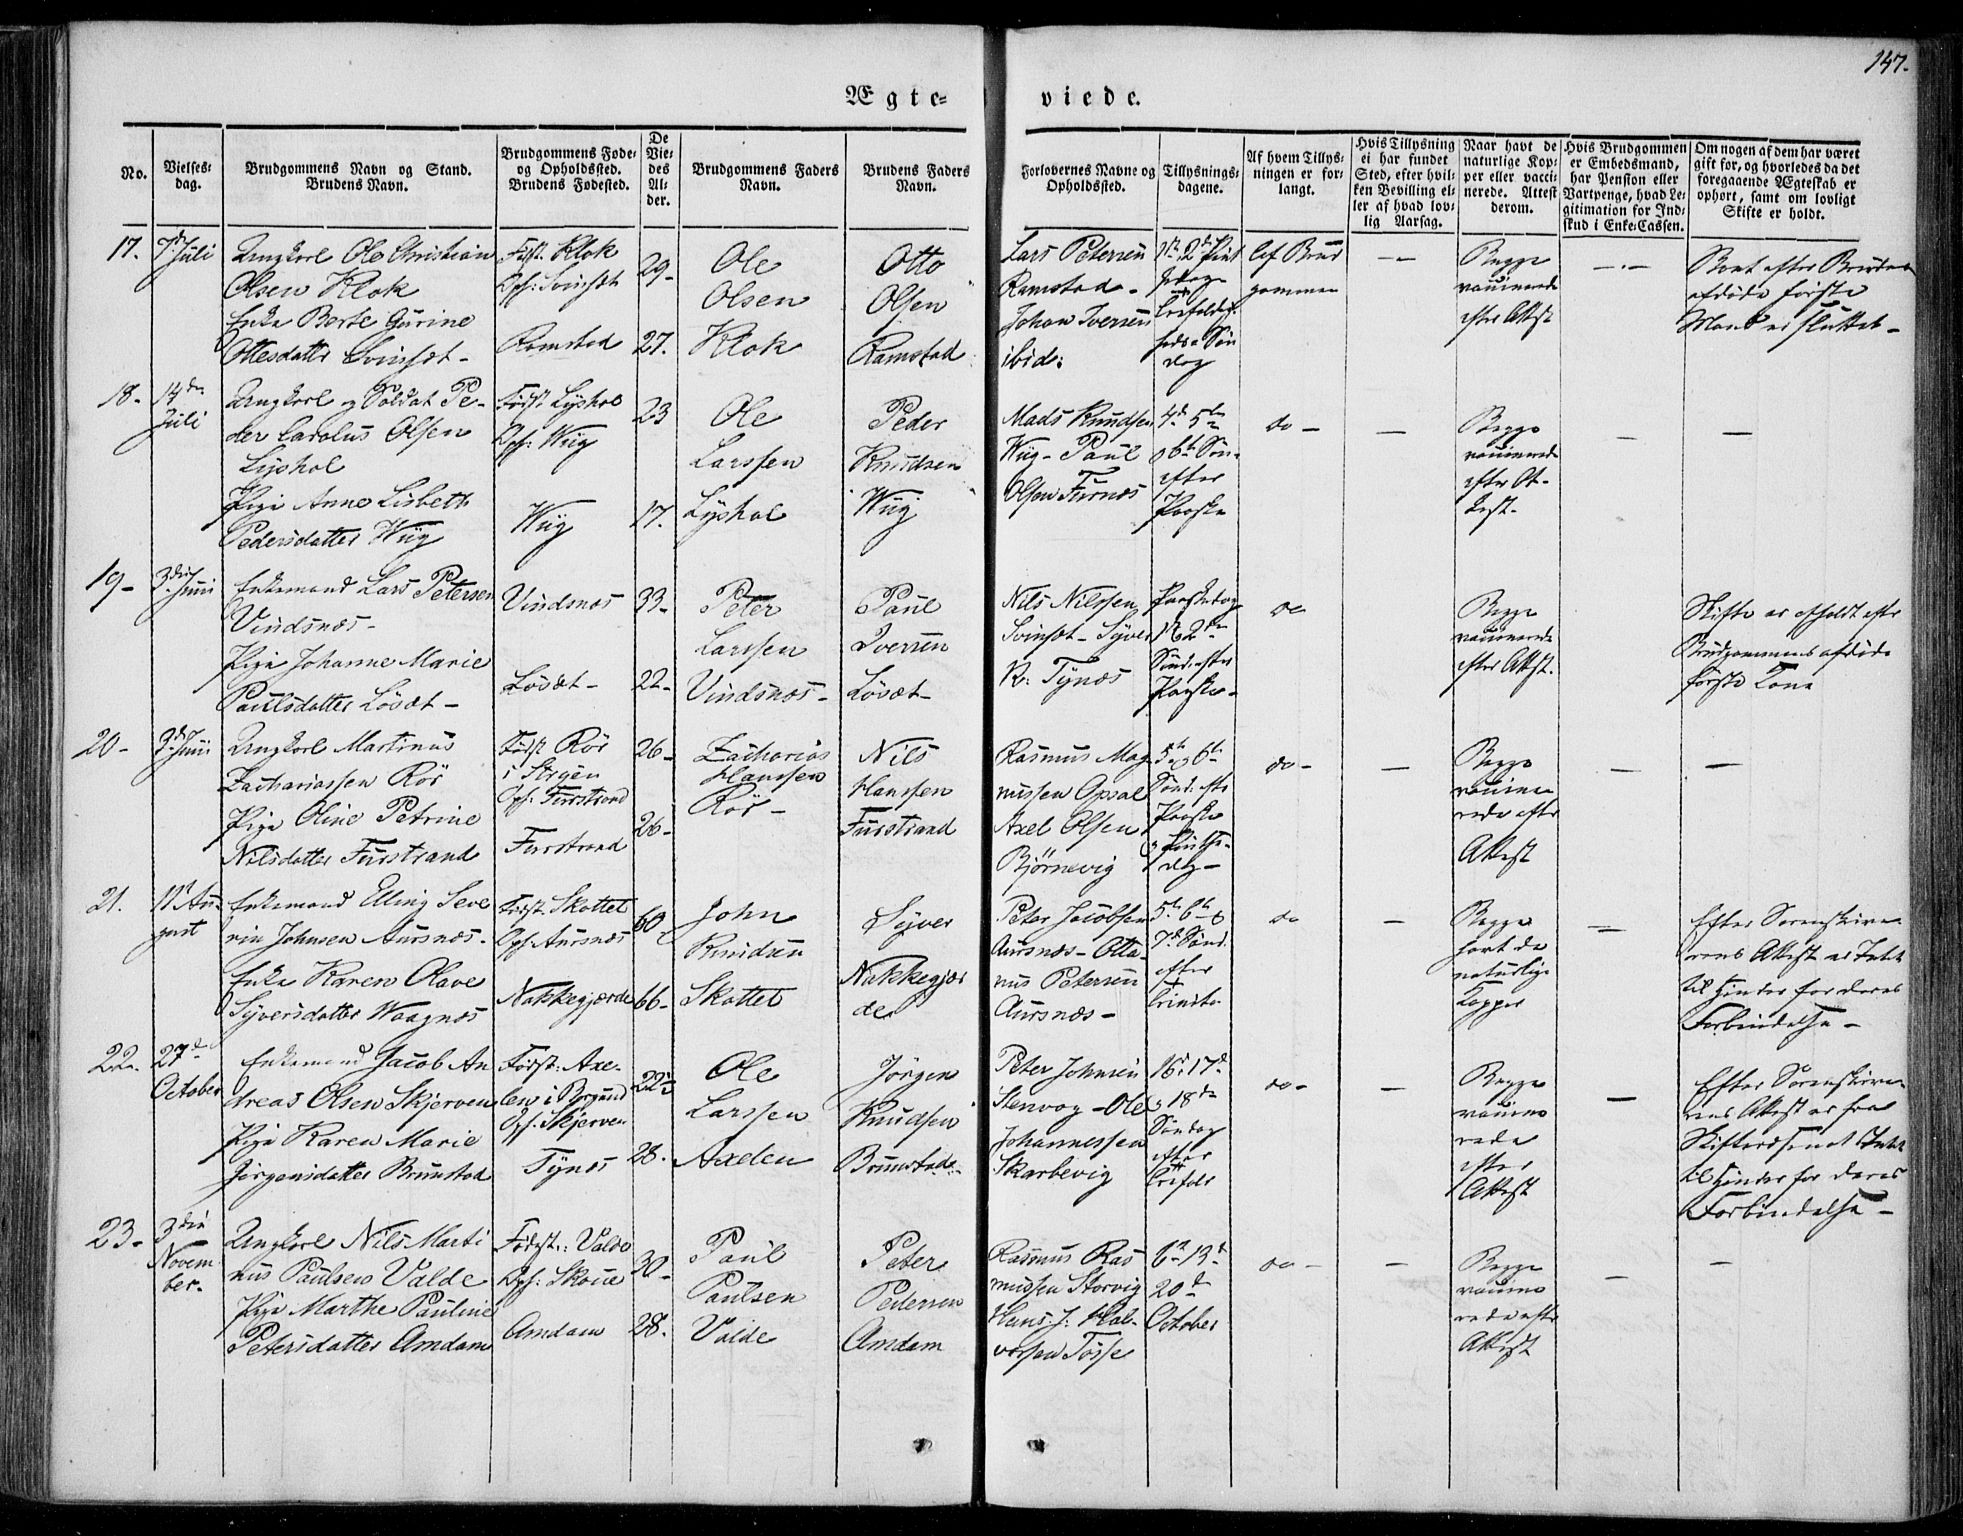 147.
Ægte-
viede.
No.
Vielses-
dag.
Brudgommens Navn og Stand.
Brudens Navn.
Brudgommens Føde-
og Opholdssted.
Brudens Fødested.
De
Vie-
des
Al-
der.
Brudgommens Faders
Navn.
Brudens Faders
Navn.
Forlovernes Navne og
Opholdssted.
Tillysnings-
dagene.
Af hvem Tillys-
ningen er for-
langt.
Hvis Tillysning
ei har fundet
Sted, efter hvil-
ken Bevilling el-
ler af hvad lov-
lig Aarsag.
Naar havt de
naturlige Kop-
per eller vacci-
nerede. Attest
derom.
Hvis Brudgommen
er Embedsmand,
har Pension eller
Vartpenge, hvad Le-
gitimation for Ind-
skud i Enke-Cassen.
Om nogen af dem har været
gift før, og hvorledes da det
foregaaende Ægteskab er
ophørt, samt om lovligt
Skifte er holdt.
17.
7d Juli
Ungkarl Ole Christian
Olsen Klok
Enke Berte Gurine
Ottesdatter Svinset -
Født. Klok
Oph: Svinset
Ramstad
29-
27.
Ole
Olsen
Klok
Otto
Olsen
Ramstad
Lars Petersen
Ramstad -
Johan Iversen
ibid:
1st 2d Pint
sedag
Trefoldig-
heds-Søn
dag
Af Brud
gommen
Begge
vaccinerede
efter Attest
Boet efter Brudens
afdøde første
Mand er sluttet -
18-
14de
Juli
Ungkarl og Soldat Pe-
der Carolus Olsen
Lyshol
Pige Anne Lisbeth
Pedersdatter Wiig
Født Lyshol
Oph: Wiig
Wiig
23
17.
Ole
Larssen
Lyshol
Peder
Knudsen
Wiig
Mads Knudsen
Wiig - Paul
Olsen Furnæs
4d 5te
o 6te Søn-
efter
Paaske
do -
Begge
vaccinerede
efter At-
test-
19-
3die Juni
Enkemand Lars Petersen
Vindsnæs -
Pige Johanne Marie
Paulsdatter Løvæt -
Vindsnæs
Løvæt -
33-
22-
Peter
Larssen
Vindsnæs -
Paul
Iversen
Løvæt -
Nils Nilssen
Svinset - Syver
R: Tynæs
Paaskedag
1ste 2den
Sønd: efter
Paaske -
do
Begge
vaccinerede
efter Attest.
Skifte er afholdt efter
Brudgommens afdøde
første Kone
20-
3d Juni
Ungkarl Martinus
Zachariassen Rør
Pige Oline Petrine
Nilsdatter Furstrand
Født Rør
i Stryen
Oph: Furstrand
Furstrand
26-
26-
Zacharias
Hanssen
Rør -
Nils
Hanssen
Furstrand
Rasmus Mag
nussen Opsal
Axel Olsen
Bjørnevig
5te o 6te
Sønd: efter
Paaske
o Pintse-
dag -
do -
Begge
vaccine
rede efter
Attest
21.
11t Au-
gust
Enkemand Elling Seve
rin Johnsen Aursnæs -
Enke Karen Olave
Syversdatter Waagnæs
Født. Skottet
Oph: Aursnæs
Nakkegjærde
60
66-
John
Knudsen
Skottet
Syver
Nakkegjær
de
Peter Jacobsen
Aursnæs - Otta-
nus Petersen
Aursnæs -
5te 6te o
7d Sønd:
efter
Trinita
do
Begge
havt de
naturlige
Kopper
Efter Sorenskrive-
rens Attest er Intet
til Hinder for deres
Forbindelse -
22.
27d
October
Enkemand Jacob An
dreas Olsen Skjerven
Pige Karen Marie
Jørgensdatter Brunstad
Født: Axe-
len i Brgund
Oph: Skjerven
Tynæs
22-
28.
Ole
Larssen
Axelen
Jørgen
Knudsen
Brunstad
Peter Johnsen
Stenvog - Ole
Johannessen
Skarbevig
16d 17d
o 18de
Søndag
efter
Trefold
do -
Begge
vaccine
rede
efter
Attest
Efter Sorenskrive-
rens Attest er fra
Skifteræsenet Intet
til Hinder for deres
Forbindelse -
23-
3die
Novem-
ber.
Ungkarl Nils Marti
nus Paulsen Valde
Pige Marthe Pauline
Petersdatter Amdam
Fødest.: Valde
Oph: Skoue
Amdam
30-
28.
Paul
Paulsen
Valde
Peter
Pedersen
Amdam
Rasmus Ras
mussen Storvig
Hans J: Hal-
vorsen Tøsse
6te 13d
20d
October
do -
Begge
vaccine
rede efter
Attest